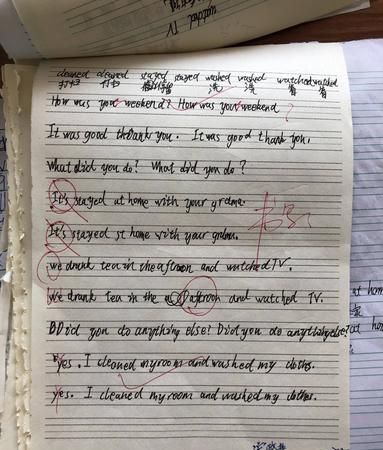 watched TV
cleaned cleaned stayed stayed washed washed watched watched
打扫 打扫 洗 洗 看 看
How was you weekend? How was your weekend ?
It was good thank you. It was good thank you.
What did you do? What did you do?
It's stayed at home with your grdma.
It's stayed st home with your grdma.
we drunk tea in the aftroon and watched TV.
We drank tea in the aftroon and watched TV.
BDid you do anything else? Did you do anything else?
yes. I cleaned my room and washed my clothes.
yes. I cleaned my room and washed my clothes.